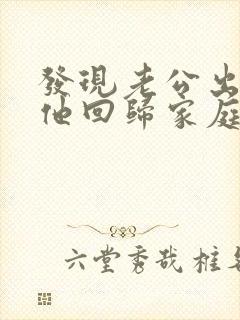 發現老公出
他回歸家庭
六堂秀哉棋